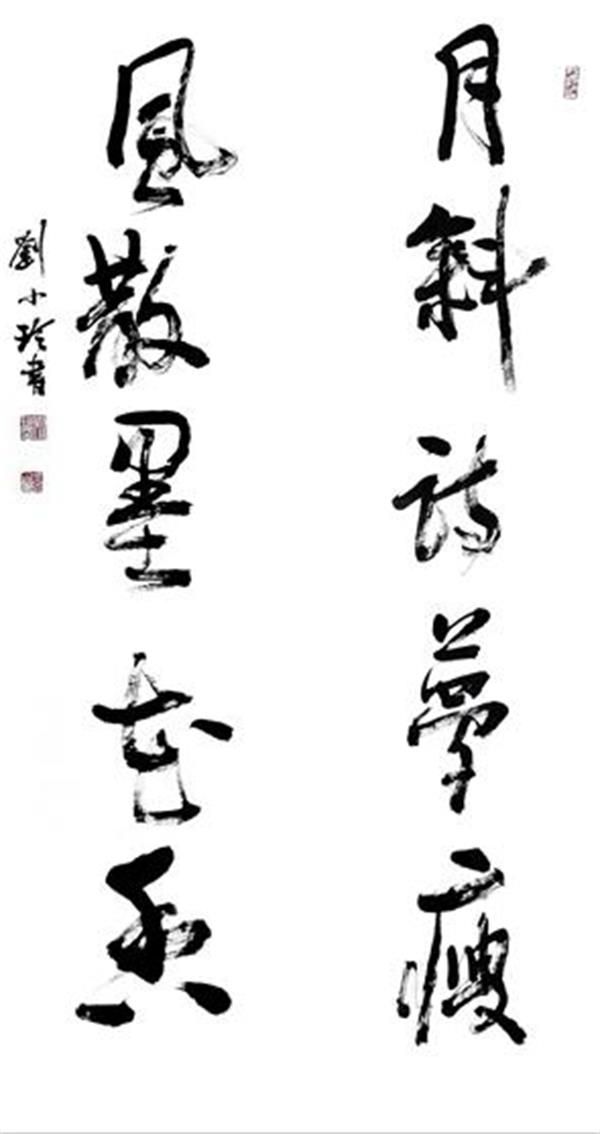 月斜詩夢瘦
風散墨花香
劉小玲書